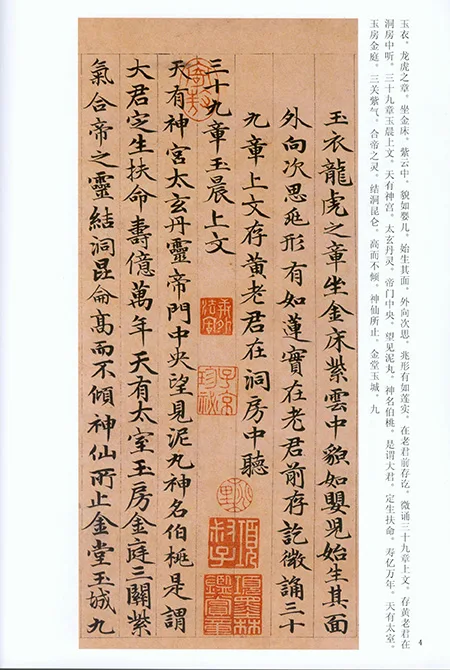 玉衣，龙虎之章。坐金床，紫云中，貌如婴儿，始生其面，外向次思，兆形有如莲实，在老君前存讫，微诵三十九章上文，存黄老君在
洞房中听。三十九章玉晨上文。天有神宫，太玄丹灵，帝门中央，望见泥丸，神名伯桃，是谓大君，定生扶命，寿亿万年，天有太室，
玉房金庭，三关紫气，合帝之灵，结洞昆仑，高而不倾，神仙所止，金堂玉城，九
玉衣龍虎之章坐金床紫雲中貌如嬰兒始生其面
外向次思兆形有如蓮實在老君前存訖微誦三十
九章上文存黃老君在洞房中聽
三十九章玉晨上文
天有神宮太玄丹靈帝門中央望見泥丸神名伯桃是謂
大君定生扶命壽億萬年天有太室玉房金庭三關紫
氣合帝之靈結洞昆侖高而不傾神仙所止金堂玉城九
子京珍秘
項叔子
項墨林鑑賞章
4